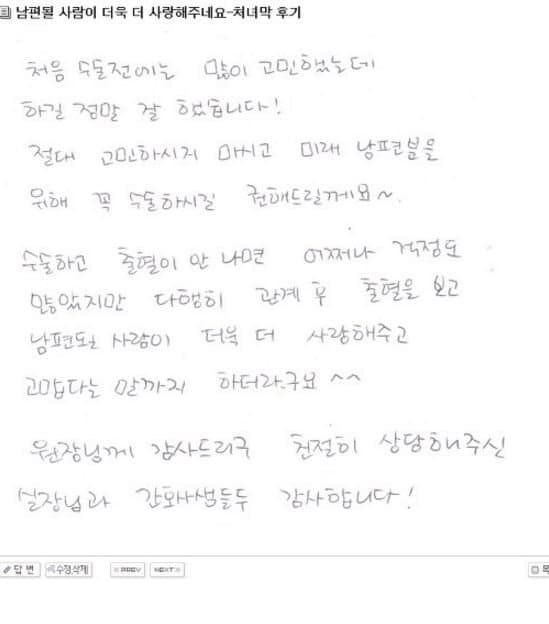 남편될 사람이 더욱 더 사랑해주네요-처녀막 후기
처음 수술전에는 많이 고민했는데
하길 정말 잘 했습니다!
절대 고민하시지 마시고 미래 남편분을
위해 꼭 수술하시길 권해드릴께요~.
수술하고 출혈이 안 나면 어쩌나 걱정도
많았지만 다행히 관계 후 출혈을 보고
남편될 사람이 더욱 더 사랑해주고
고맙다는 말까지 하더라구요 ^^
원장님께 감사드리구 친절히 상담해주신
실장님과 간호사샘들두 감사합니다!
답변 수정삭제 PREV NEXT 목